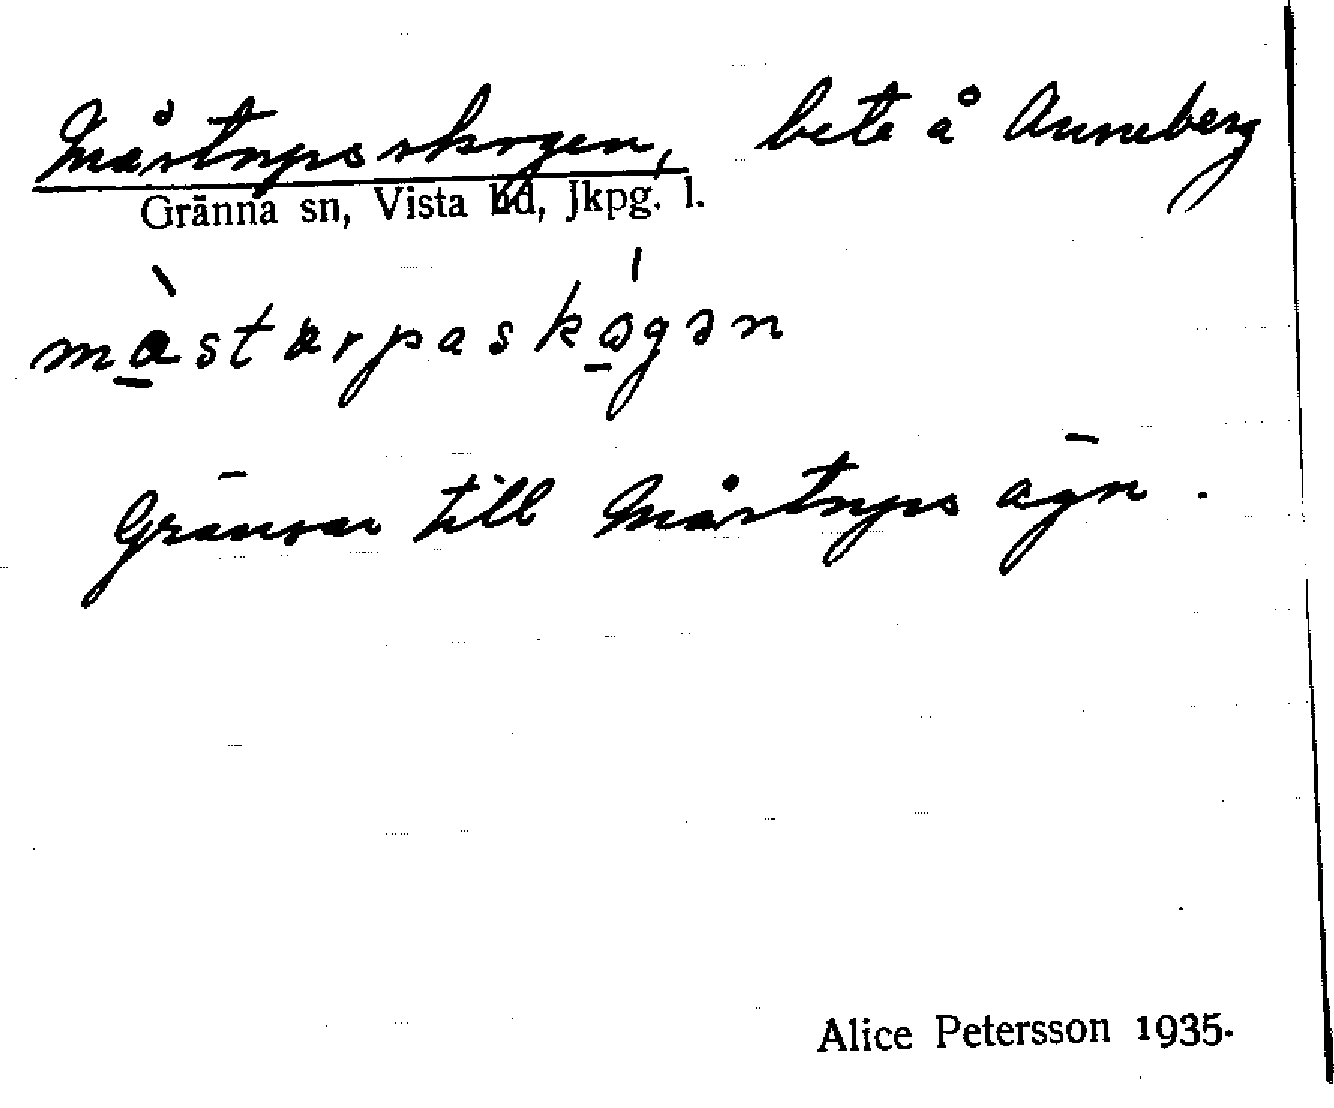 Mårtorpsskogen, bete å Anneberg
Gränna sn, Vista hd, Jkpg. l.
mastarpaskogən
Gränsar till Mårtorps ägor.
Alice Petersson 1935.